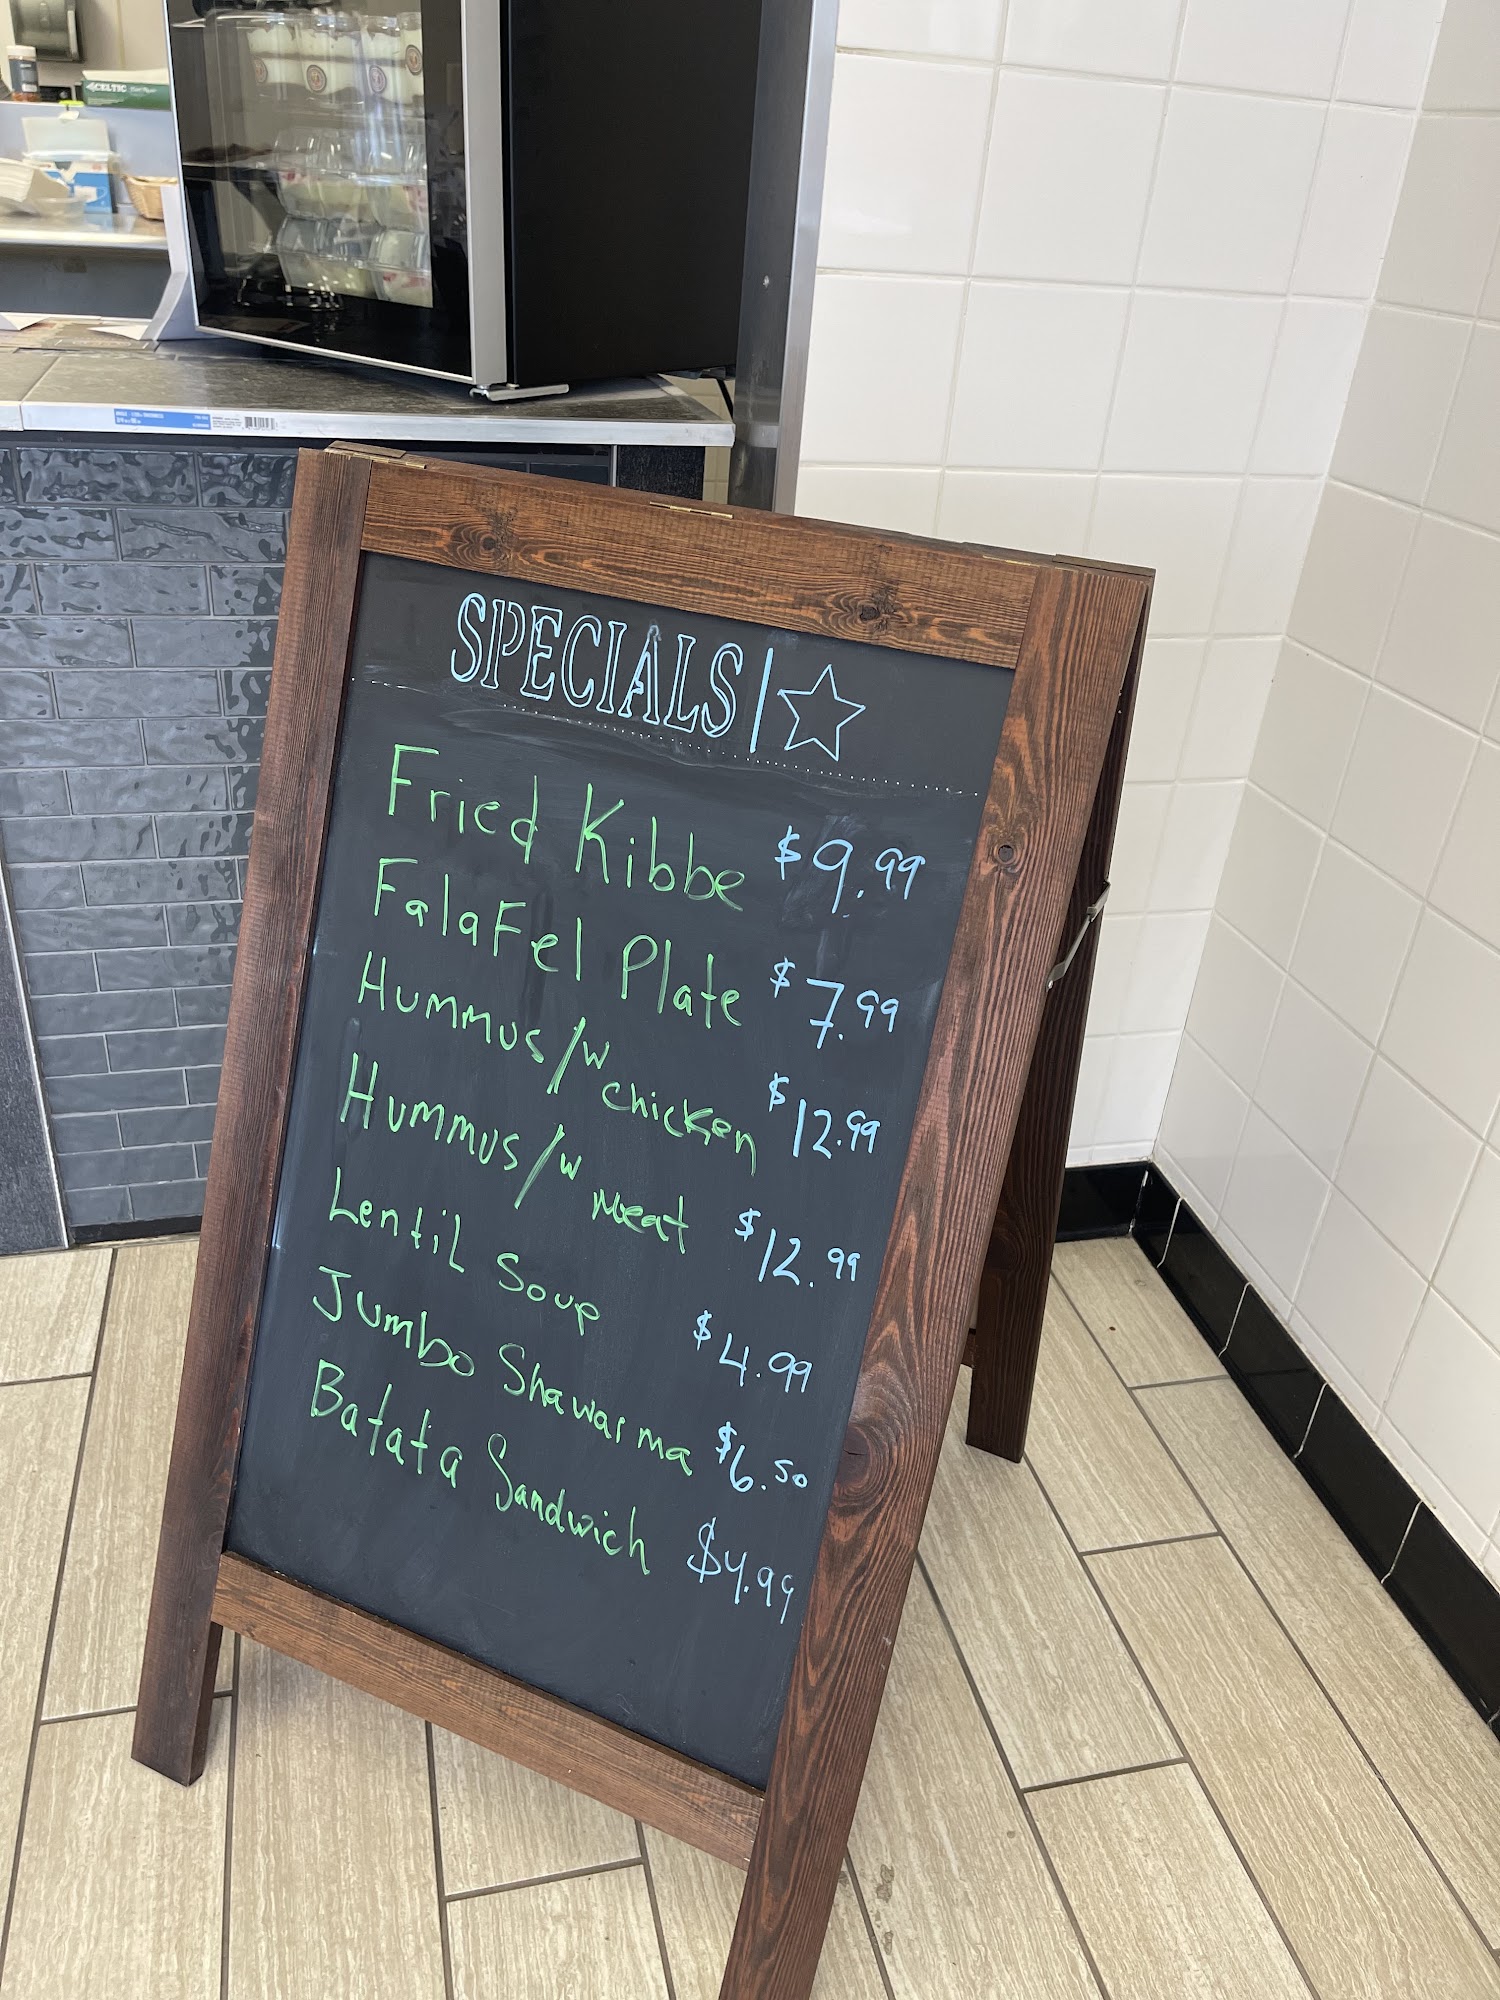 CELTIC
SPECIALS
Fried Kibbe $9.99
Falafel Plate $7.99
Hummus/w chicken $12.99
Hummus/w Meat $12.99
Lentil Soup $4.99
Jumbo Shawarma $6.50
Batata Sandwich $4.99